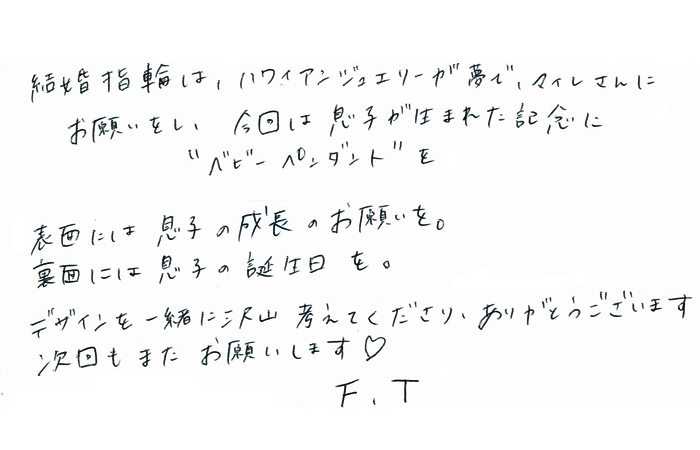 結婚指輪は、ハワイアンジュエリーが夢で、マイレさんに
お願いをし、今回は息子が生まれた記念に
"ベビーペンダント"を
表面には息子の成長のお願いを。
裏面には息子の誕生日を。
デザインを一緒に沢山考えてくださり、ありがとうございます
次回もまたお願いします♡
F.T